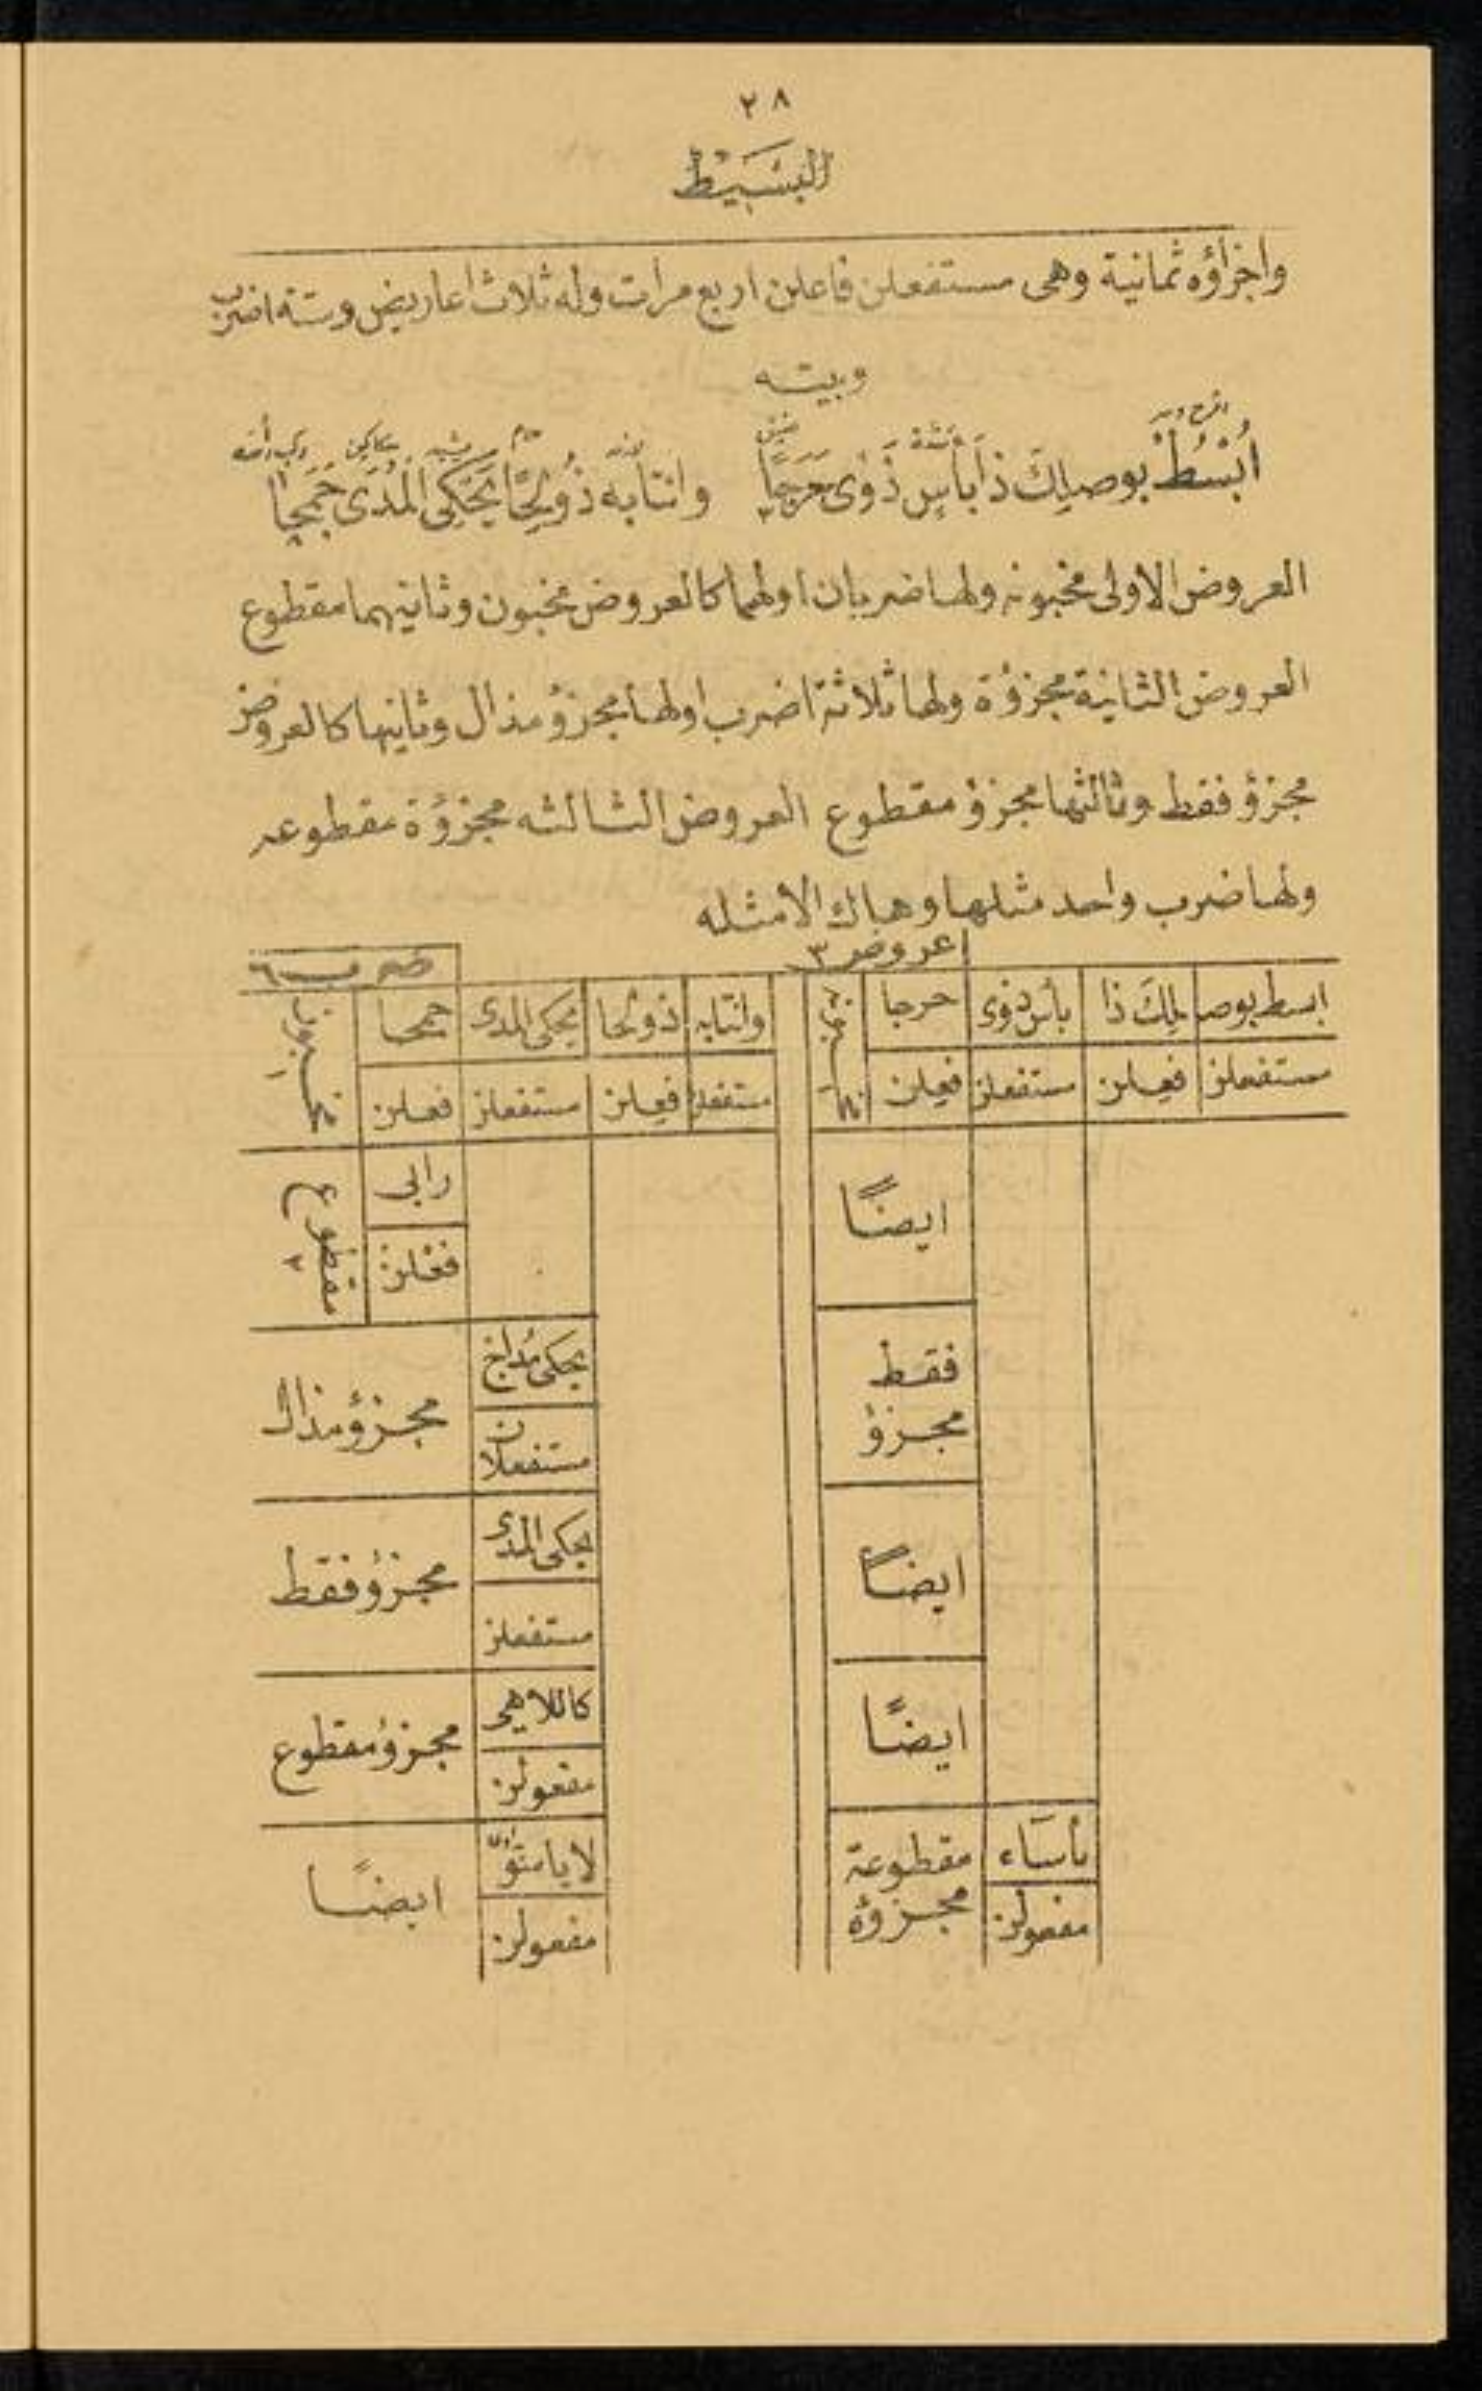 ٢٨
البَسَيْط
واجزاؤه ثمانية وهى مستفعلن فاعلن اربع مرات وله ثلاث اعاريض وستة اضرب
وبيته
اُبْسُطْ بوصلِكَ ذا باسٍ ذَوٰى حَرَجًا وانتابه ذُو يَحْكِى المُدَى
العروض الاولى مخبونه ولها ضربان اولهما كالعروض مخبون وثانيهما مقطوع
العروض الثانية مجزؤة ولها ثلاثة اضرب اولها مجزؤ مذال وثانيها كالعروض
مجزؤ فقط وثالثها مجزؤ مقطوع العروض الثالثه مجزؤة مقطوعه
ولها ضرب واحد مثلها وهاك الامثله
عروض ٣ ضرب ٦
ابسط بوص لِكَ ذا بأسٍ ذوى حرجا وانتابه يحكى المدى
مستفعلن فعِلن مستفعلن فعِلن مستفعلن فعِلن مستفعلن فعِلن مخبون ١
ايضًا رابى
فعْلن مقطوع ٢
فقط يحكى
مجزؤ مستفعلان مجزؤ مذال
ايضًا يحكى المدى
مستفعلن مجزؤ فقط
ايضًا كاللاهى
مفعولن مجزؤ مقطوع
بأساء مقطوعة
مفعولن مجزؤه مفعولن ايضًا